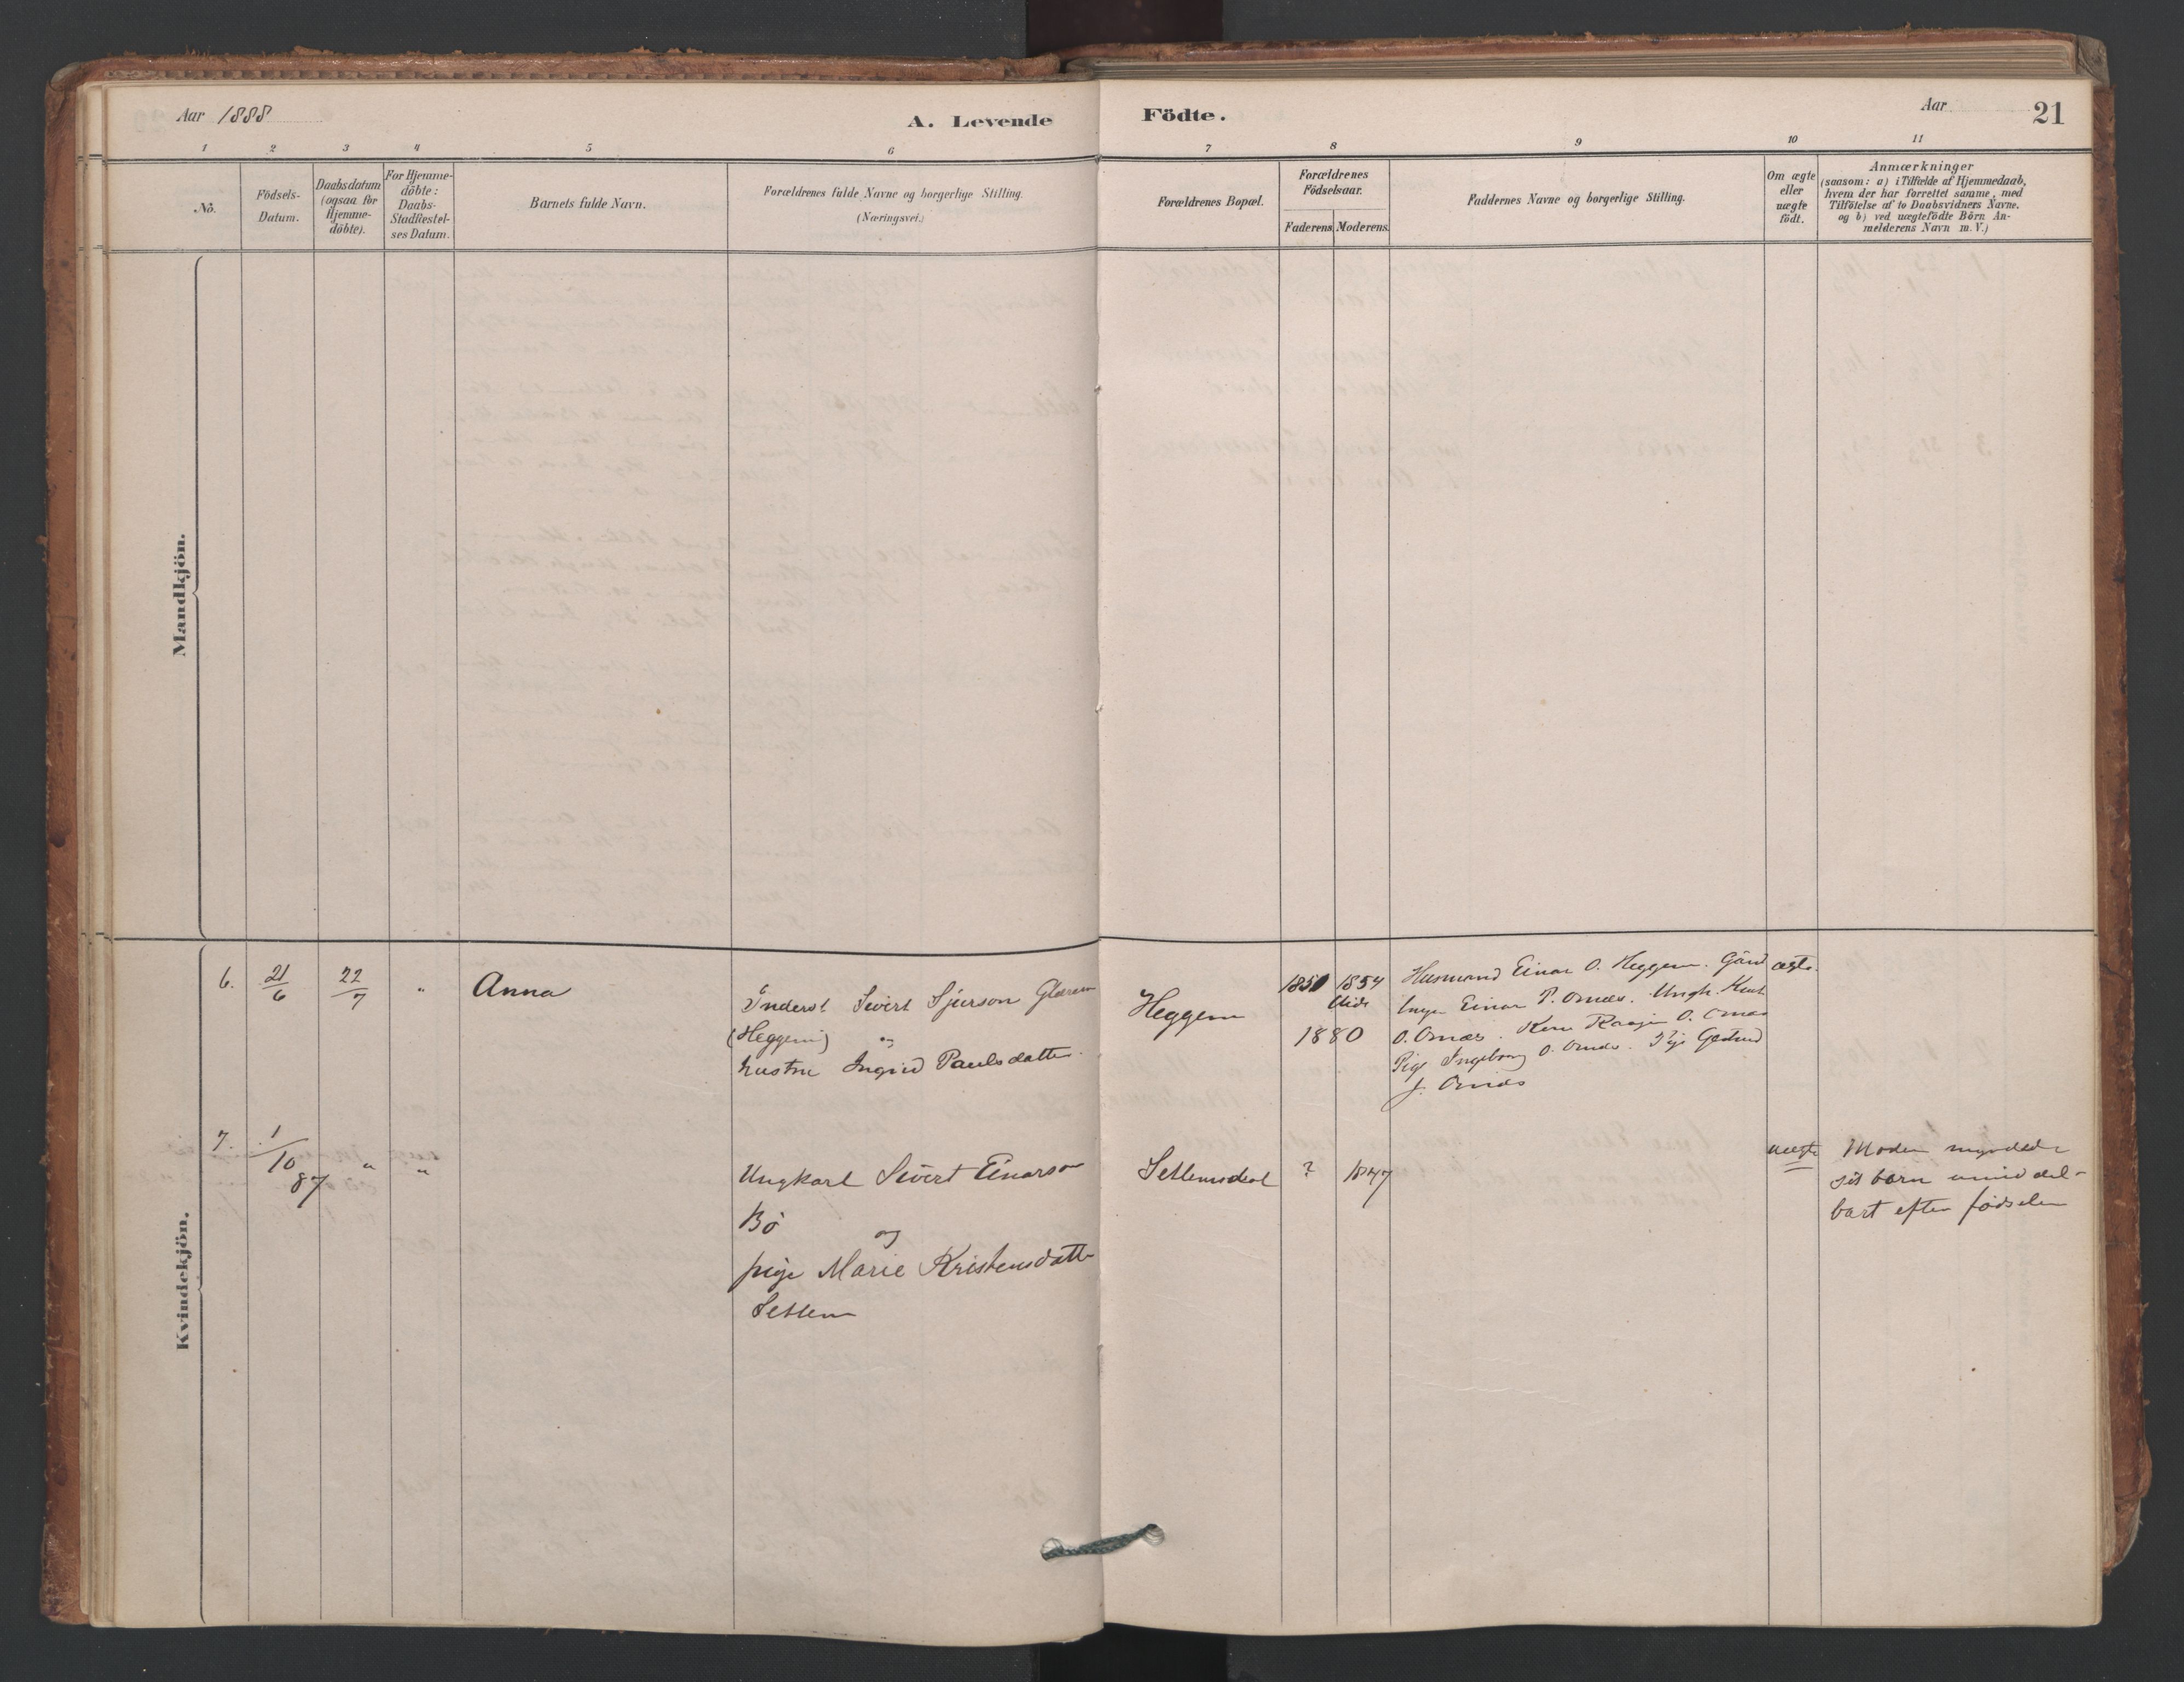 Aar 1888
A. Levende Födte.
Aar
21
1 2 3 4 5 6 7 8 9 10 11
No.
Födsels-
Datum.
Daabsdatum
(ogsaa for
Hjemme-
döbte).
For Hjemme-
döbte:
Daabs-
Stadfæstel-
ses Datum.
Barnets fulde Navn.
Forældrenes fulde Navne og borgerlige Stilling.
(Næringsvei.)
Forældrenes Bopæl.
Forældrenes
Födselsaar.
Faderens. Moderens.
Faddernes Navne og borgerlige Stilling.
Om ægte
eller
uægte
födt.
Anmærkninger
(saasom: a) i Tilfælde af Hjemmedaab,
hvem der har forrettet samme, med
Tilföielse af to Daabsvidners Navne.
og b) ved uægtefödte Börn An-
melderens Navn m. V.)
Mandkjön.
Kvindekjön.
6. 21/6 22/7 "
Anna
Inderst Sivert Sjurson Glærem
(Heggem) og
hustru Ingrid Paulsdatter
Heggem
1850 1854
1880
Husmand Einar O. Heggem. Gård
Einar P. Ornæs. Ungk. Knut
O. Ornæs. Kone O. Ornæs
Pige Ingeborg O. Ornæs. Pige Gjertrud
J. Ornæs
ægte.
7. 1/10 87 " "
Ungkarl Sivert Einarson
Bö
og
pige Marie Kristensdatter
Settem
Settemsdal
? 1847
uægte
Moder myrdede
sit barn umiddel-
bart efter fødselen